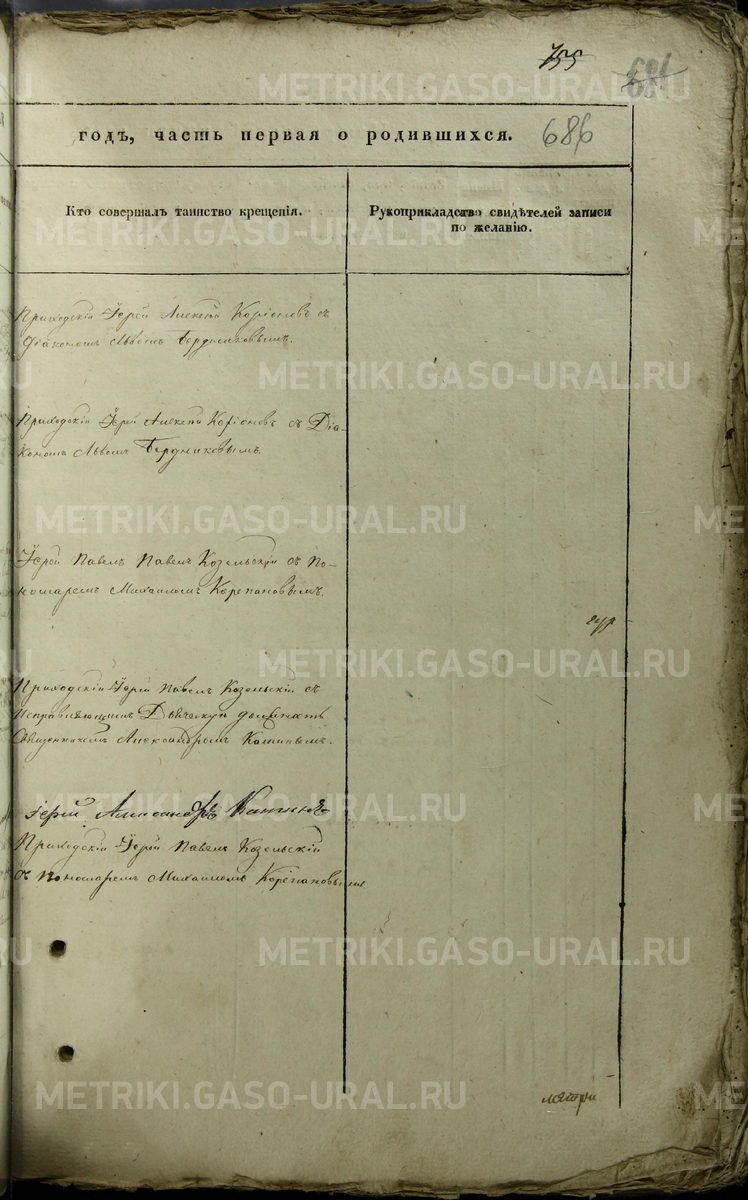 755
686
METRIKI.GASO-URAL.RU
годъ, часть первая о родившихся. 686
Кто совершалъ таинство крещенія.
Рукоприкладство свидѣтелей записи по желанію.
Приходскій Іерей Алексѣй Коріоновъ съ
Діакономъ Львомъ Бердниковымъ.
Приходскій Іерей Алексѣй Коріоновъ съ Діа-
кономъ Львомъ Бердниковымъ.
Іерей Павелъ Павелъ Козельскій съ По-
номаремъ Михаиломъ Корепановымъ.
Приходскій Іерей Павелъ Козельскій съ
исправляющимъ Дьяческую должность
Священникомъ Александромъ Коминымъ.
Іерей Александръ
Приходскій Іерей Павелъ Козельскій
съ Пономаремъ Михаиломъ Корепановымъ